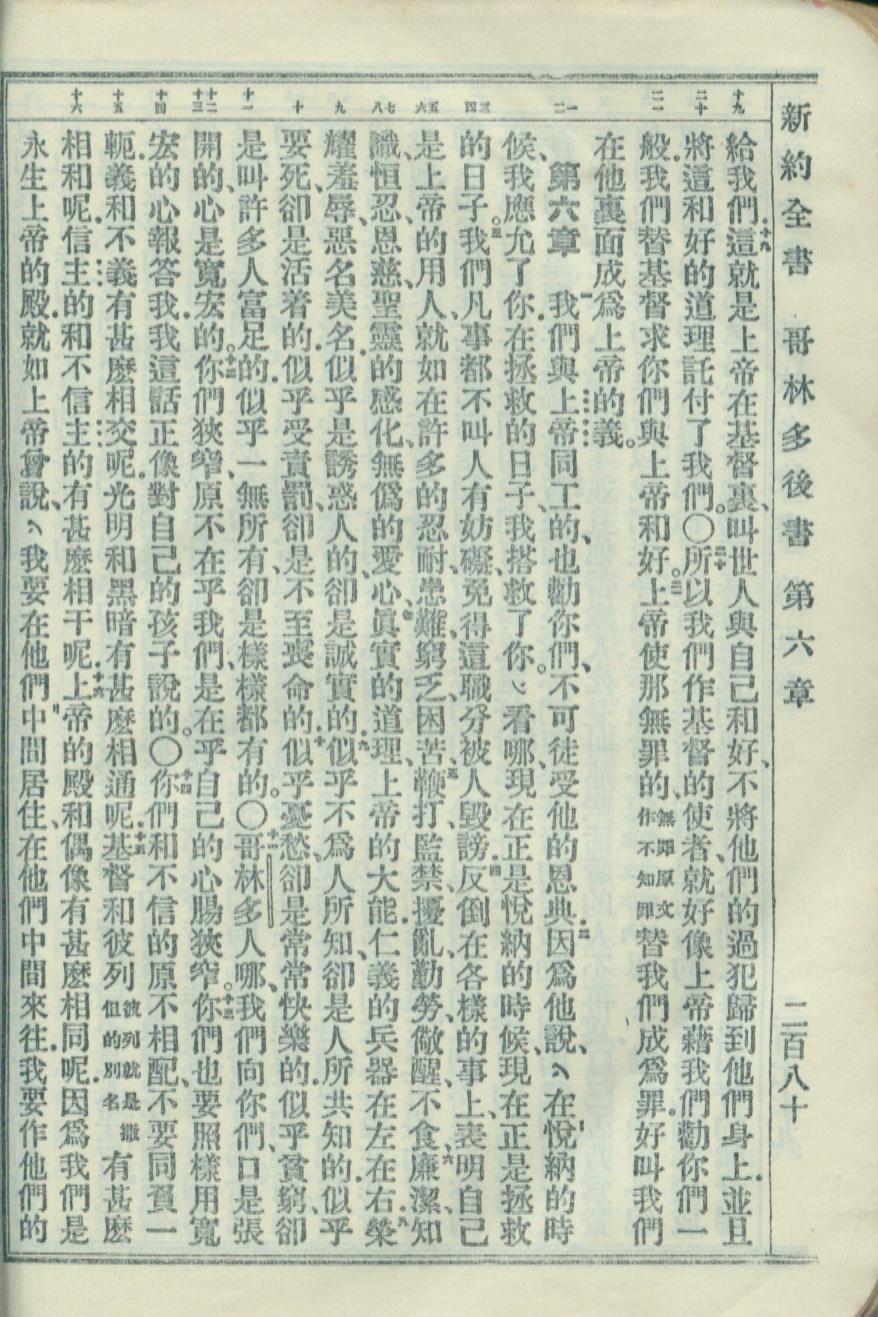 新約全書 哥林多後書 第六章 二百八十
十九 二十 二一 一 二 三 四 五 六 七 八 九 十 十一 十二 十三 十四 十五 十六
給我們。十九這就是上帝在基督裏、叫世人與自己和好、不將他們的過犯歸到他們身上、並且
將這和好的道理託付了我們。〇二十所以我們作基督的使者、就好像上帝藉我們勸你們一
般、我們替基督求你們與上帝和好。二一上帝使那無罪的、無罪原文作不知罪替我們成爲罪、好叫我們
在他裏面成爲上帝的義。
第六章 一我們與上帝同工的、也勸你們、不可徒受他的恩典。二因爲他說、在悅納的時
候、我應允了你、在拯救的日子、我搭救了你。看哪、現在正是悅納的時候、現在正是拯救
的日子。三我們凡事都不叫人有妨礙、免得這職分被人毀謗。四反倒在各樣的事上、表明自己
是上帝的用人、就如在許多的忍耐、患難、窮乏、困苦、五鞭打、監禁、擾亂、勤勞、儆醒、不食、六廉潔、知
識、恒忍、恩慈、聖靈的感化、無僞的愛心、七眞實的道理、上帝的大能、仁義的兵器在左在右、八榮
耀羞辱、惡名美名、似乎是誘惑人的、卻是誠實的、九似乎不爲人所知、卻是人所共知的、似乎
要死、卻是活着的、似乎受責罰、卻是不至喪命的、十似乎憂愁、卻是常常快樂的、似乎貧窮、卻
是叫許多人富足的、似乎一無所有、卻是樣樣都有的。〇十一哥林多人哪、我們向你們、口是張
開的、心是寬宏的。十二你們狹窄、原不在乎我們、是在乎自己的心腸狹窄。十三你們也要照樣用寬
宏的心報答我、我這話正像對自己的孩子說的。〇十四你們和不信的原不相配、不要同負一
軛、義和不義有甚麼相交呢、光明和黑暗有甚麼相通呢、十五基督和彼列彼列就是撒但的別名有甚麼
相和呢、信主的和不信主的有甚麼相干呢、十六上帝的殿和偶像有甚麼相同呢、因爲我們是
永生上帝的殿、就如上帝曾說、我要在他們中間居住、在他們中間來往、我要作他們的